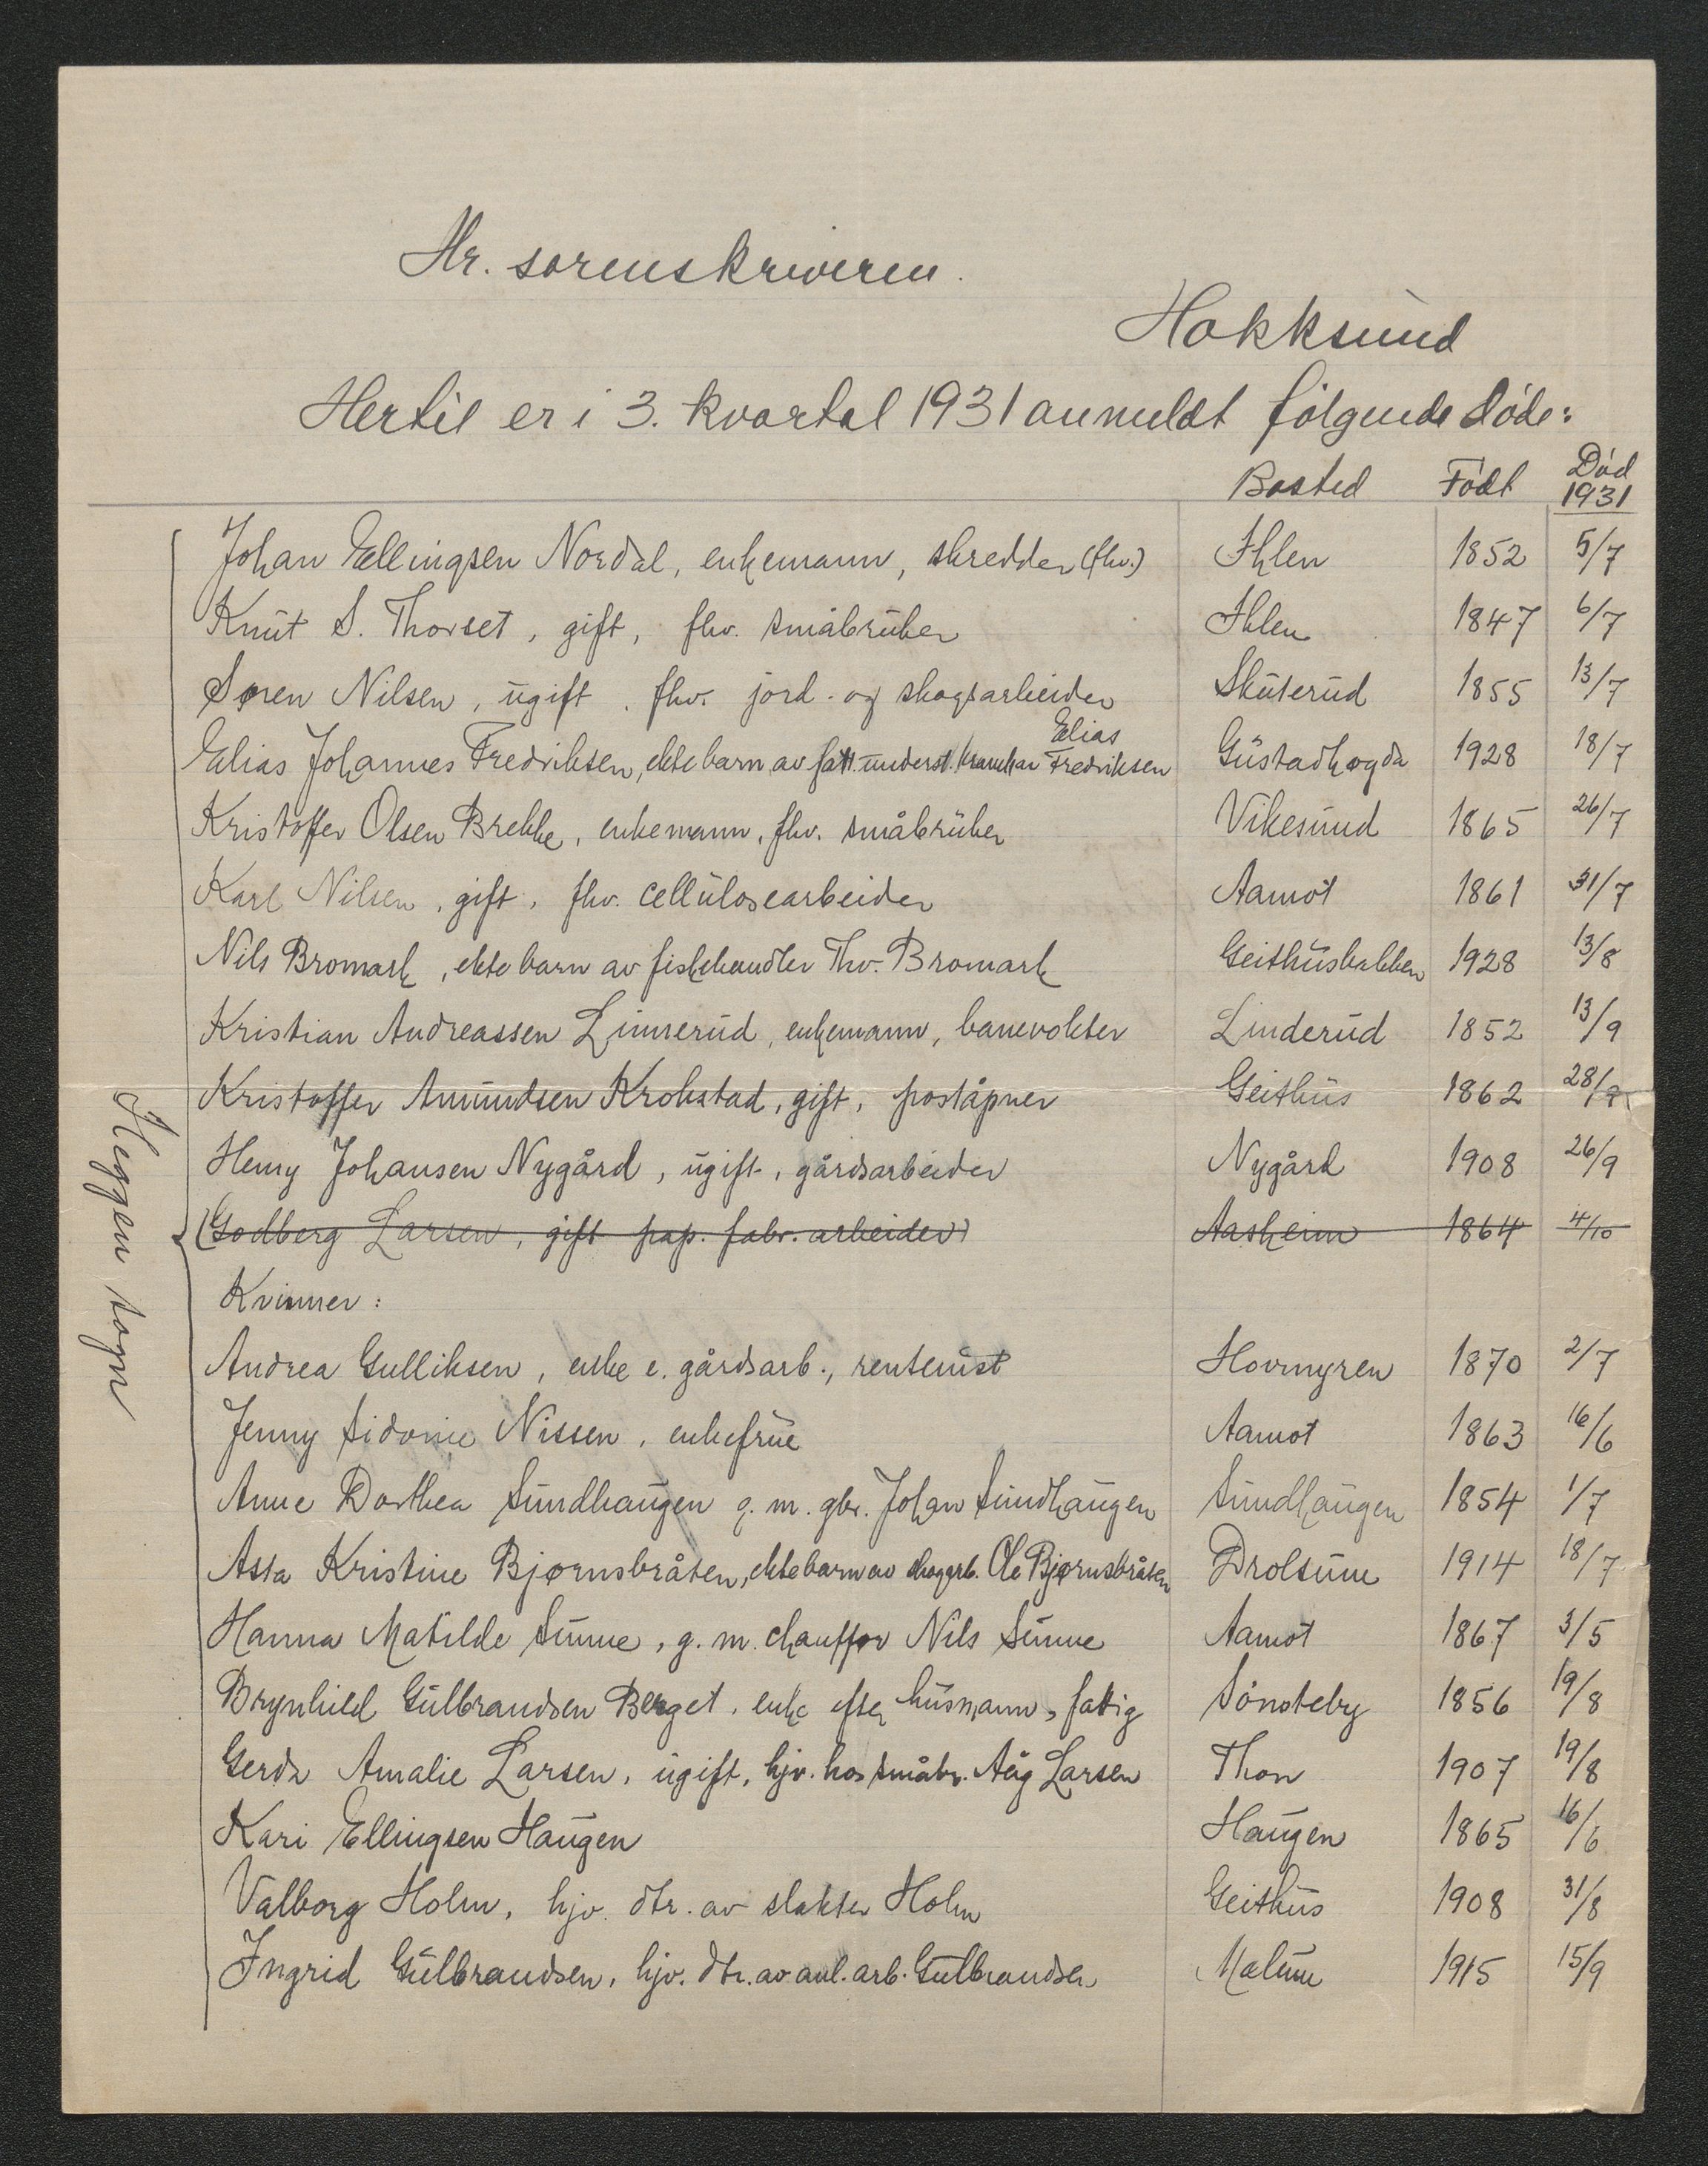 Hr. sorenskriveren.
Hokksund
Hertil er i 3. kvartal 1931 anmeldt følgende døde:
Bosted Født Død 1931
Johan Ellingsen Nordal, enkemann, skredder (fhv.) Ihlen 1852 5/7
Knut S. Thorset, gift, fhv. småbruker Ihlen 1847 6/7
Søren Nilsen, ugift, fhv. jord- og skogsarbeider Skuterud 1855 13/7
Elias Johannes Fredriksen, ekte barn av fatt. underst. Elias Fredriksen Gustadhøgda 1928 18/7
Kristoffer Olsen Brekke, enkemann, fhv. småbruker Vikesund 1865 26/7
Karl Nilsen, gift, fhv. cellulosearbeider Aamot 1861 31/7
Nils Bromark, ekte barn av fiskehandler Thv. Bromark Geithusbakken 1928 13/8
Kristian Andreassen Linnerud, enkemann, banevokter Linderud 1852 13/9
Kristoffer Amundsen Krokstad, gift, poståpner Geithus 1862 28/8
Henry Johansen Nygård, ugift, gårdsarbeider Nygård 1908 26/9
(Godberg Larsen, gift pap. fabr. arbeider) Aasheim 1864 4/10
Kvinner:
Andrea Gulliksen, enke e. gårdsarb., rentenist Hovmyren 1870 2/7
Jenny Sidonie Nissen, enkefrue Aamot 1863 16/6
Anne Dorthea Sundhaugen g. m. gbr. Johan Sundhaugen Sundhaugen 1854 1/7
Asta Kristine Bjørnsbråten, ekte barn av skogarb. Ole Bjørnsbråten Drolsum 1914 18/7
Hanna Matilde Sunne, g. m. chauffør Nils Sunne Aamot 1867 3/5
Brynhild Gulbrandsen Berget, enke efter husmann, fattig Sønsteby 1856 19/8
Gerda Amalie Larsen, ugift, hjv. hos småbr. Aug Larsen Thon 1907 19/8
Kari Ellingsen Haugen Haugen 1865 16/6
Valborg Holm, hjv. dtr. av slakter Holm Geithus 1908 31/8
Ingrid Gulbrandsen, hjv. dtr. av anl. arb. Gulbrandsen Malum 1915 15/9
Heggen sogn